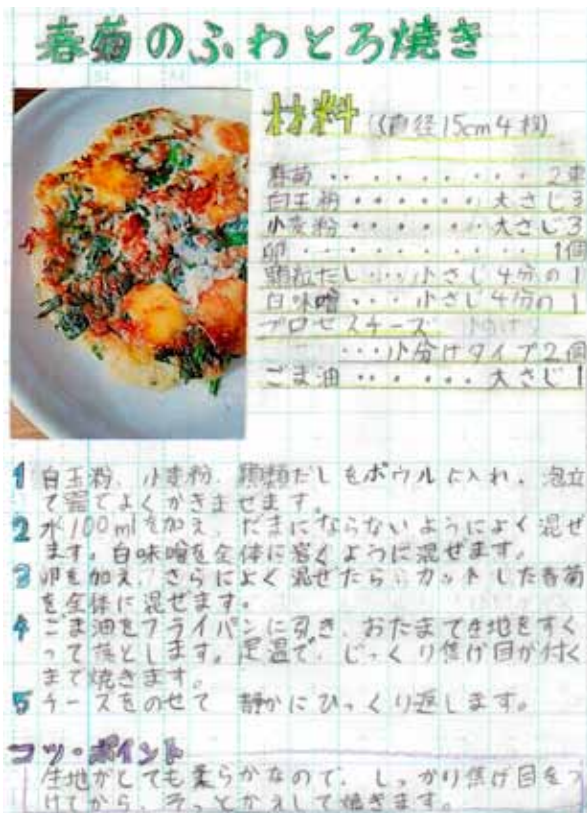 春菊のふわとろ焼き
材料 (直径15cm4枚)
春菊・・・・・・・・・2束
白玉粉・・・・・・大さじ3
小麦粉・・・・・・大さじ3
卵・・・・・・・・・・1個
顆粒だし・・・小さじ4分の1
白味噌・・・小さじ4分の1
プロセスチーズ
・・・小分けタイプ2個
ごま油・・・・・・大さじ1
1 白玉粉、小麦粉、顆粒だしをボウルに入れ、泡立
て器でよくかきまぜます。
2 水100mlを加え、だまにならないようによく混ぜ
ます。白味噌を全体に溶くように混ぜます。
3 卵を加え、さらによく混ぜたら、カットした春菊
を全体に混ぜます。
4 ごま油をフライパンに引き、おたまで生地をすく
って落とします。足温で、じっくり焦げ目が付く
まで焼きます。
5 チーズをのせて 静かにひっくり返します。
コツ・ポイント
生地がとても柔らかなので、しっかり焦げ目をつ
けてから、そっとかえして焼きます。